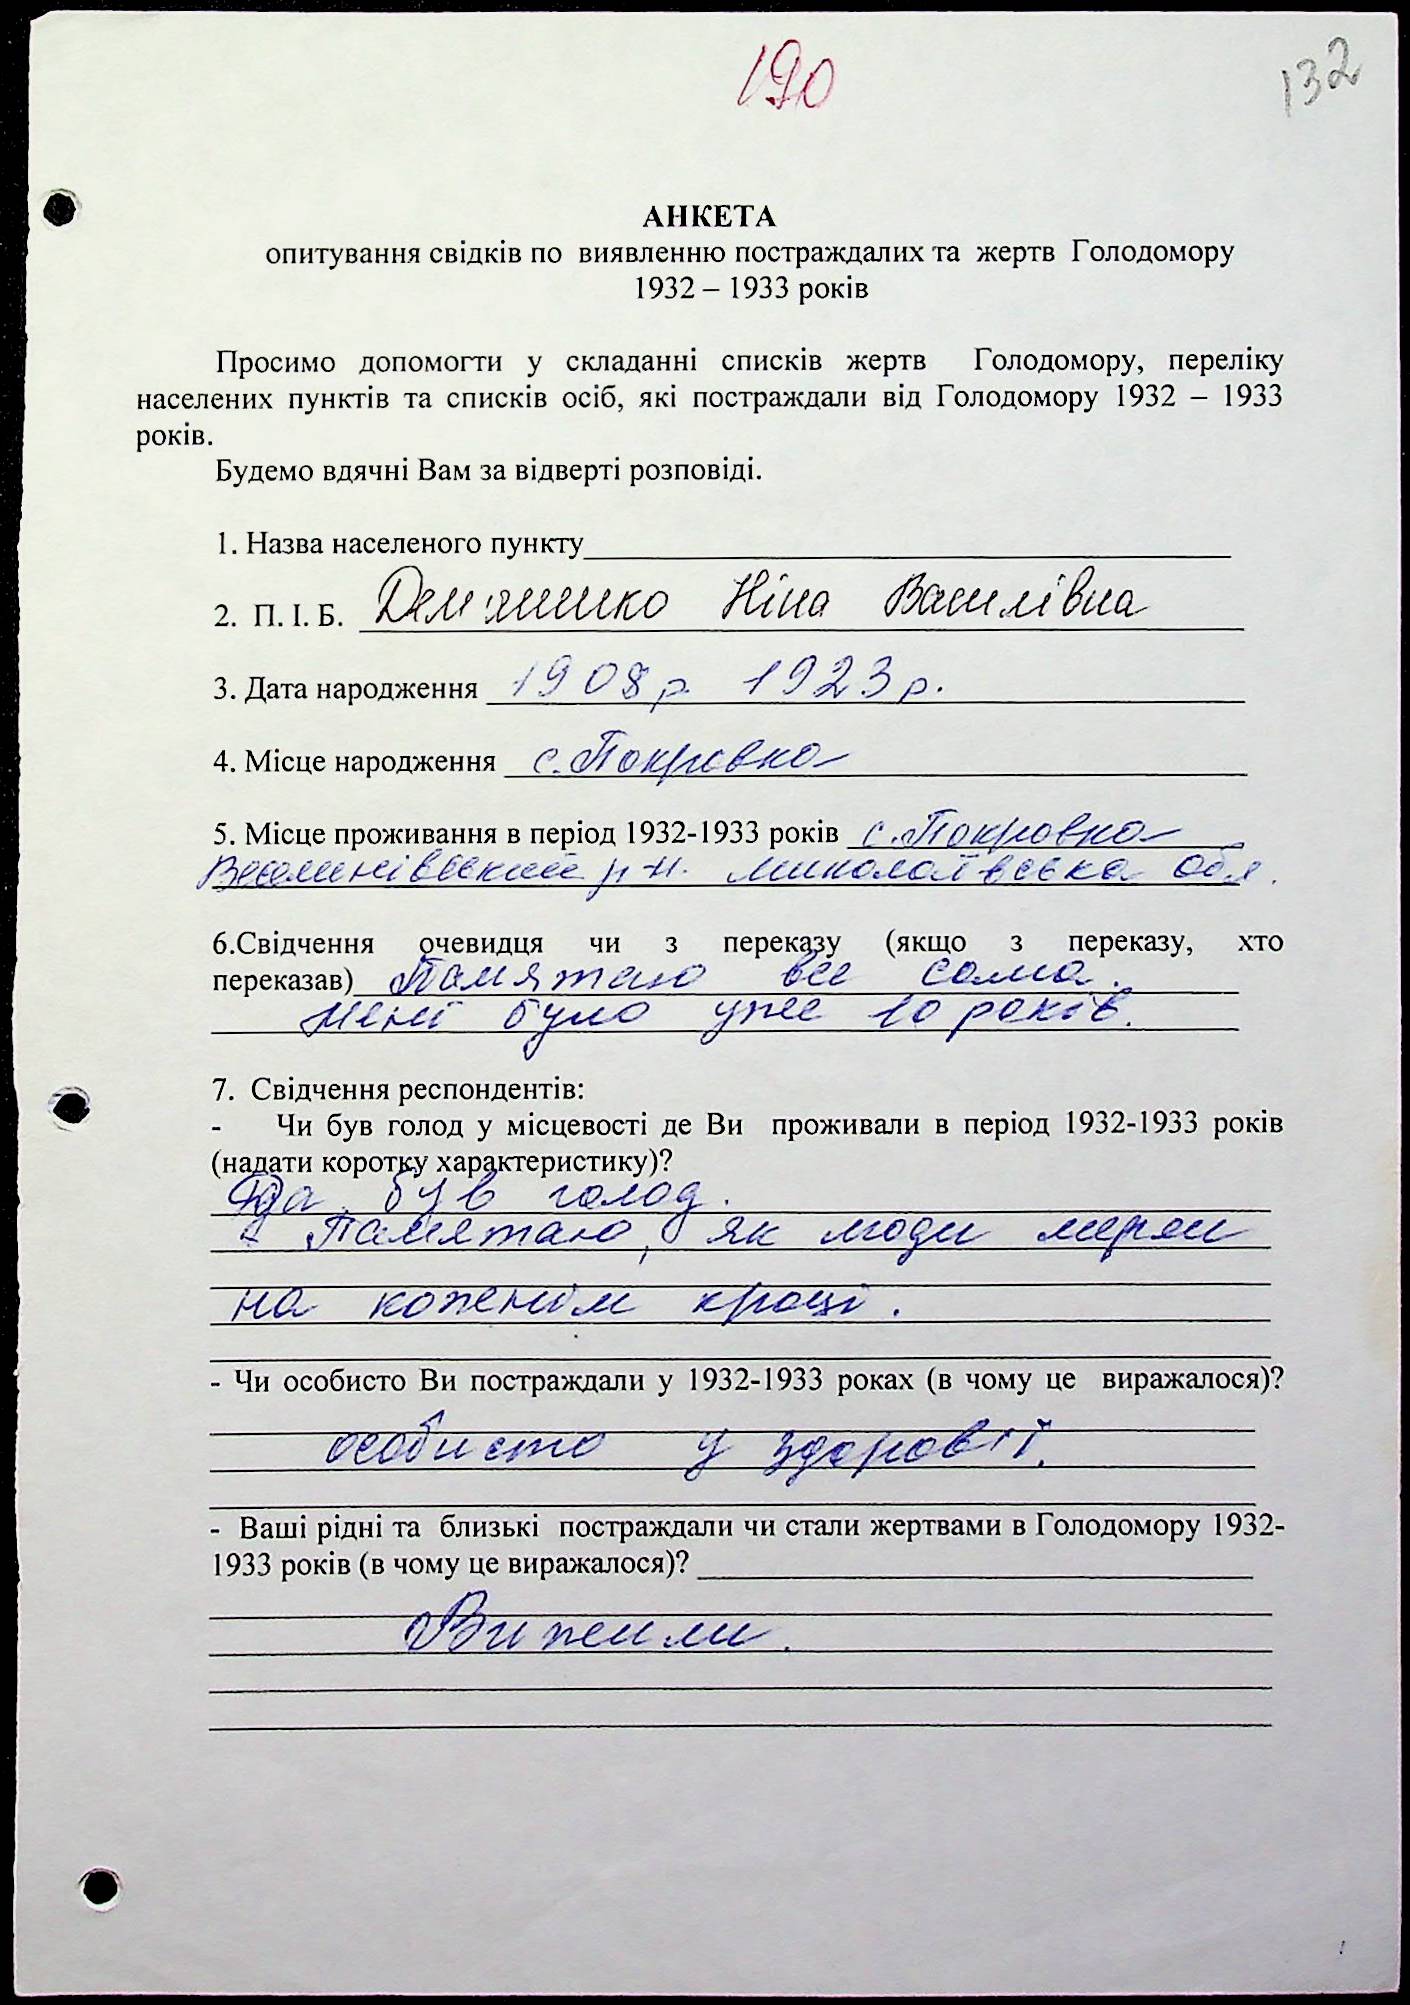 190
132
АНКЕТА
опитування свідків по виявленню постраждалих та жертв Голодомору
1932 – 1933 років
Просимо допомогти у складанні списків жертв Голодомору, переліку
населених пунктів та списків осіб, які постраждали від Голодомору 1932 – 1933
років.
Будемо вдячні Вам за відверті розповіді.
1. Назва населеного пункту
2. П. І. Б. Дем'яненко Ніна Василівна
3. Дата народження 1908 р. 1923 р.
4. Місце народження с. Покровка
5. Місце проживання в період 1932-1933 років с. Покровка
Веселинівський р-н. Миколаївська обл.
6.Свідчення очевидця чи з переказу (якщо з переказу, хто
переказав) Памятаю все сама.
Мені було уже 10 років.
7. Свідчення респондентів:
- Чи був голод у місцевості де Ви проживали в період 1932-1933 років
(надати коротку характеристику)?
Да, був голод.
Памятаю, як люди мерли
на кожнім кроці.
- Чи особисто Ви постраждали у 1932-1933 роках (в чому це виражалося)?
особисто у здоровії.
- Ваші рідні та близькі постраждали чи стали жертвами в Голодомору 1932-
1933 років (в чому це виражалося)?
Вижили.